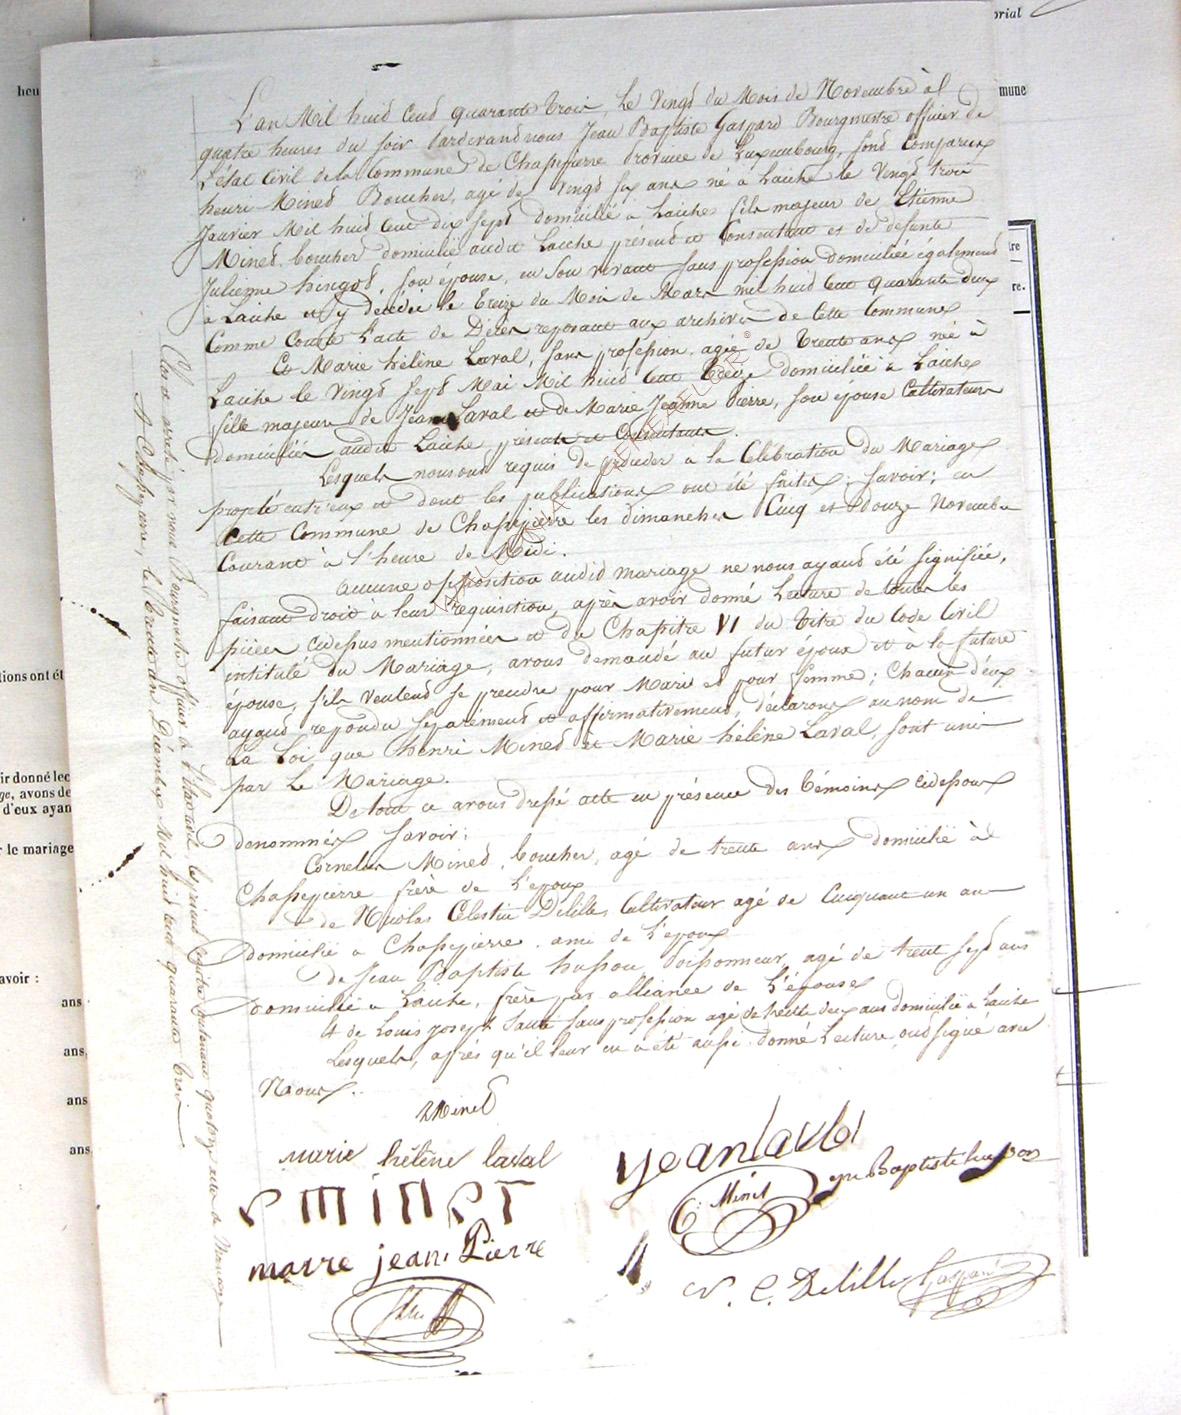 orial
heu
mune
L'an Mil huid Cend quarante trois, Le Vingd du Mois de Novembre à l
quatre heures du soir Pardevand nous Jean Baptiste Gaspard Bourgmestre officier de
L'état Civil de la Commune de Chassepierre Province de Luxembourg, sond Comparus
henri Mined Boucher, agé de Vingd six ans né à Laiche le Vingd trois
Janvier Mil huid Cent dix Septd domicilié a Laiche fils majeur de Etienne
Mined, boucher domicilié audit Laiche présend et Consentant et de défunte
Julienne hingod, son épouse, en son vivant sans profession domiciliée égalemend
a Laiche et y decedée le treize du Mois de Mars mil huid Cent quarante deux
Comme Conste l'acte de Décès reposant aux archives de Cette Commune
Et Marie hélène Laval, sans profession, agée de trente ans née à
Laiche le Vingd Sept Mai Mil huid Cent treize domiciliée à Laiche
fille majeure de Jean Laval et de Marie Jeanne Pierre, son épouse Cultivateurs
domiciliés audit Laiche présents et Consentants.
Lesquels nous ond requis de procéder a la Célébration du Mariage
projeté entr'eux et dont les publications ont été faites; Savoir; en
Cette Commune de Chassepierre les dimanches Cinq et douze Novembre
Courant à l'heure de Midi.
aucune opposition audid mariage ne nous ayand été signifiée,
faisant droit a leur requisition, après avoir donné Lecture de toutes les
pièces cidessus mentionnées et du Chapitre VI du titre du Code Civil
intitulé du Mariage, avons demandé au futur époux et à la future
épouse, s'ils veulend se prendre pour Mari et pour femme; Chacun d'eux
ayand repondu séparémend et affirmativemend, déclarons au nom de
La Loi que henri Mined et Marie hélène Laval, sont unis
par Le Mariage.
De tout ce avons dressé acte en présence des témoins cidessous
denommés Savoir;
Cornelis Mined, boucher, agé de trente ans domicilié à
Chassepierre frère de L'époux
de Nicolas Célestin Delille, Cultivateur agé de Cinquante un ans
domicilié a Chassepierre, ami de L'époux
De Jean Baptiste husson, agé de trente Sept ans
domicilié a Laiche, frère par alliance de L'épouse
4 de Louis joseph sans profession agé de trente deux ans domicilié a Laiche
Lesquels, après qu'il leur en a été aussi donné Lecture, ond signé avec
Nous.
Minet
marie hélène laval
jean laval
C: Minet
jn Baptiste husson
E MINET
marre jean Pierre
N. C. Delille
Gaspard
Clos et arreté par nous Bourgmestre officier de l'état civil, le présent registre Contenant quatorze actes de Mariage
A Chassepierre, le trente un Décembre Mil huid Cent quarante trois
tions ont ét
ir donné lec
ge, avons de
d'eux ayan
r le mariage
avoir :
ans
ans,
ans
ans,
re.